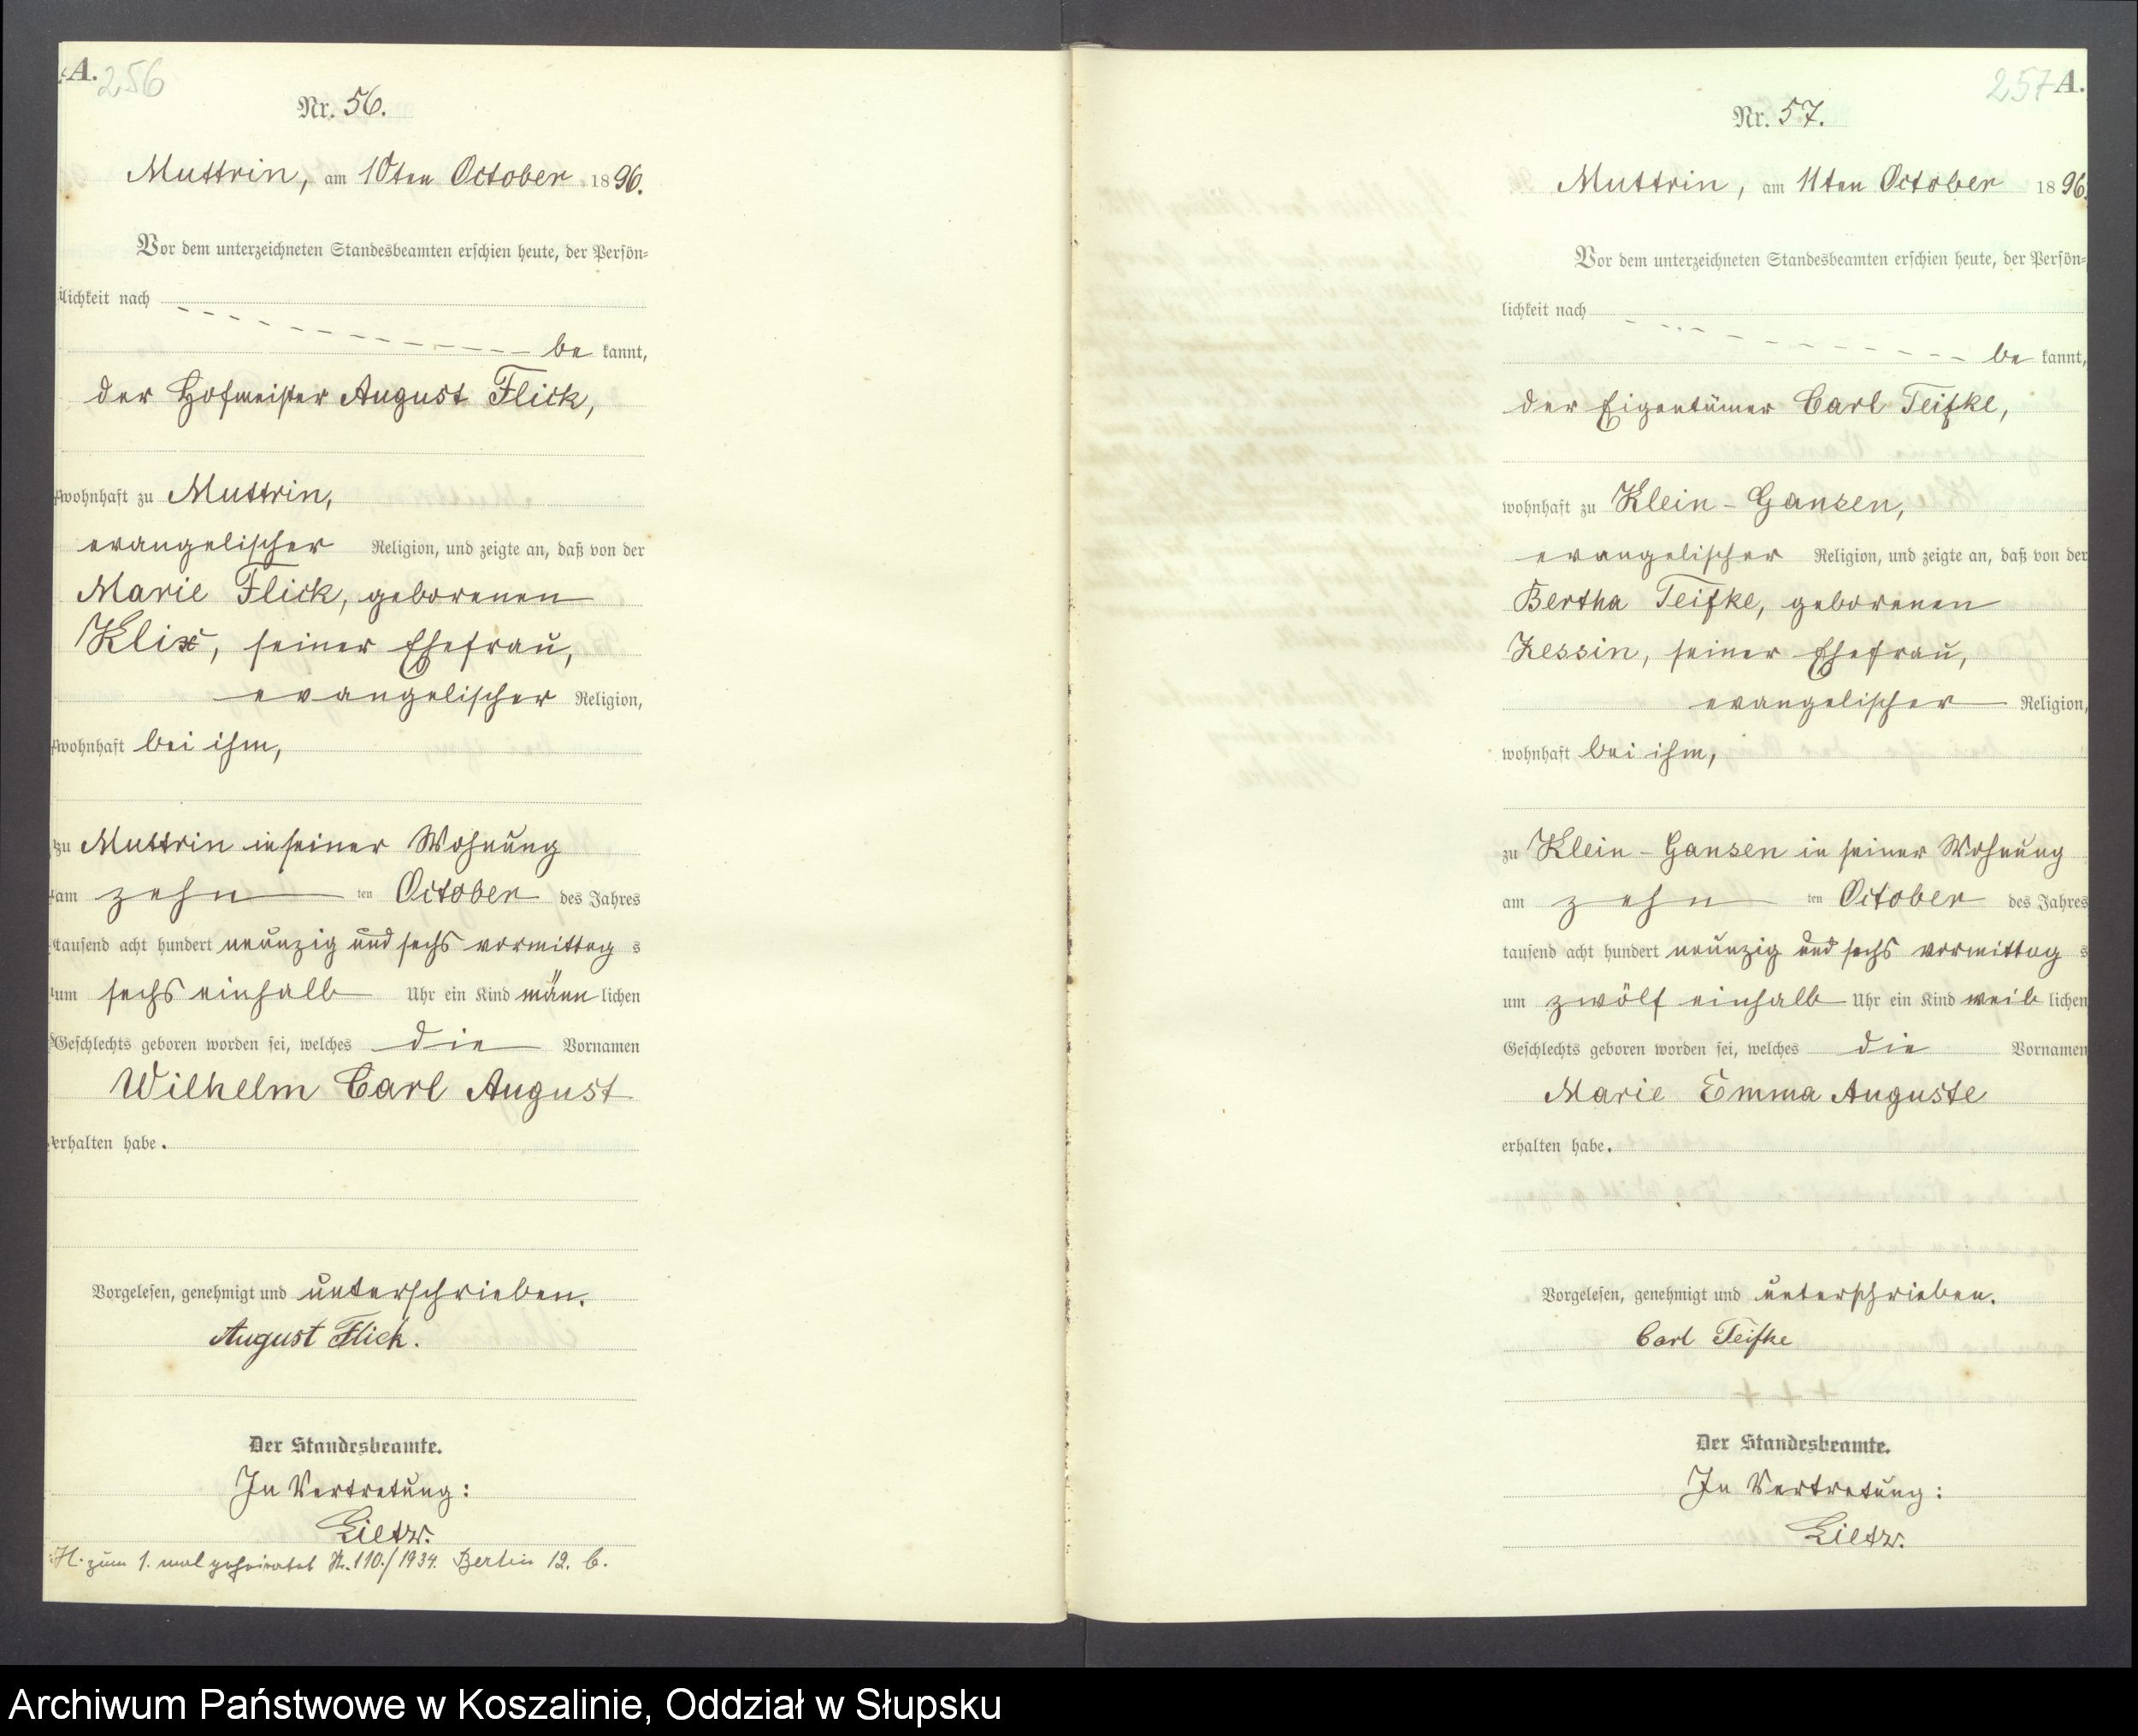 A. 256
Nr. 56.
Muttrin, am 10ten October 1896.
Vor dem unterzeichneten Standesbeamten erschien heute, der Persön-
lichkeit nach
be kannt,
der Hofmeister August Flick,
wohnhaft zu Muttrin,
evangelischer Religion, und zeigte an, daß von der
Marie Flick, geborenen
Klix, seiner Ehefrau,
evangelischer Religion,
wohnhaft bei ihm,
zu Muttrin in seiner Wohnung
am zehn ten October des Jahres
tausend acht hundert neunzig und sechs vormittag s
um sechs einhalb Uhr ein Kind männ lichen
Geschlechts geboren worden sei, welches die Vornamen
Wilhelm Carl August
erhalten habe.
Vorgelesen, genehmigt und unterschrieben.
August Flick.
Der Standesbeamte.
In Vertretung:
Lietz.
H. zum 1. mal geheiratet Nr. 110./1934. Berlin 12. b.
257 A.
Nr. 57.
Muttrin, am 11ten October 1896.
Vor dem unterzeichneten Standesbeamten erschien heute, der Persön-
lichkeit nach
be kannt,
der Eigentümer Carl Teifke,
wohnhaft zu Klein-Gansen,
evangelischer Religion, und zeigte an, daß von der
Bertha Teifke, geborenen
Zessin, seiner Ehefrau,
evangelischer Religion,
wohnhaft bei ihm,
zu Klein-Gansen in seiner Wohnung
am zehn ten October des Jahres
tausend acht hundert neunzig und sechs vormittag s
um zwölf einhalb Uhr ein Kind weib lichen
Geschlechts geboren worden sei, welches die Vornamen
Marie Emma Auguste
erhalten habe.
Vorgelesen, genehmigt und unterschrieben.
Carl Teifke
Der Standesbeamte.
In Vertretung:
Lietz.
Archiwum Państwowe w Koszalinie, Oddział w Słupsku